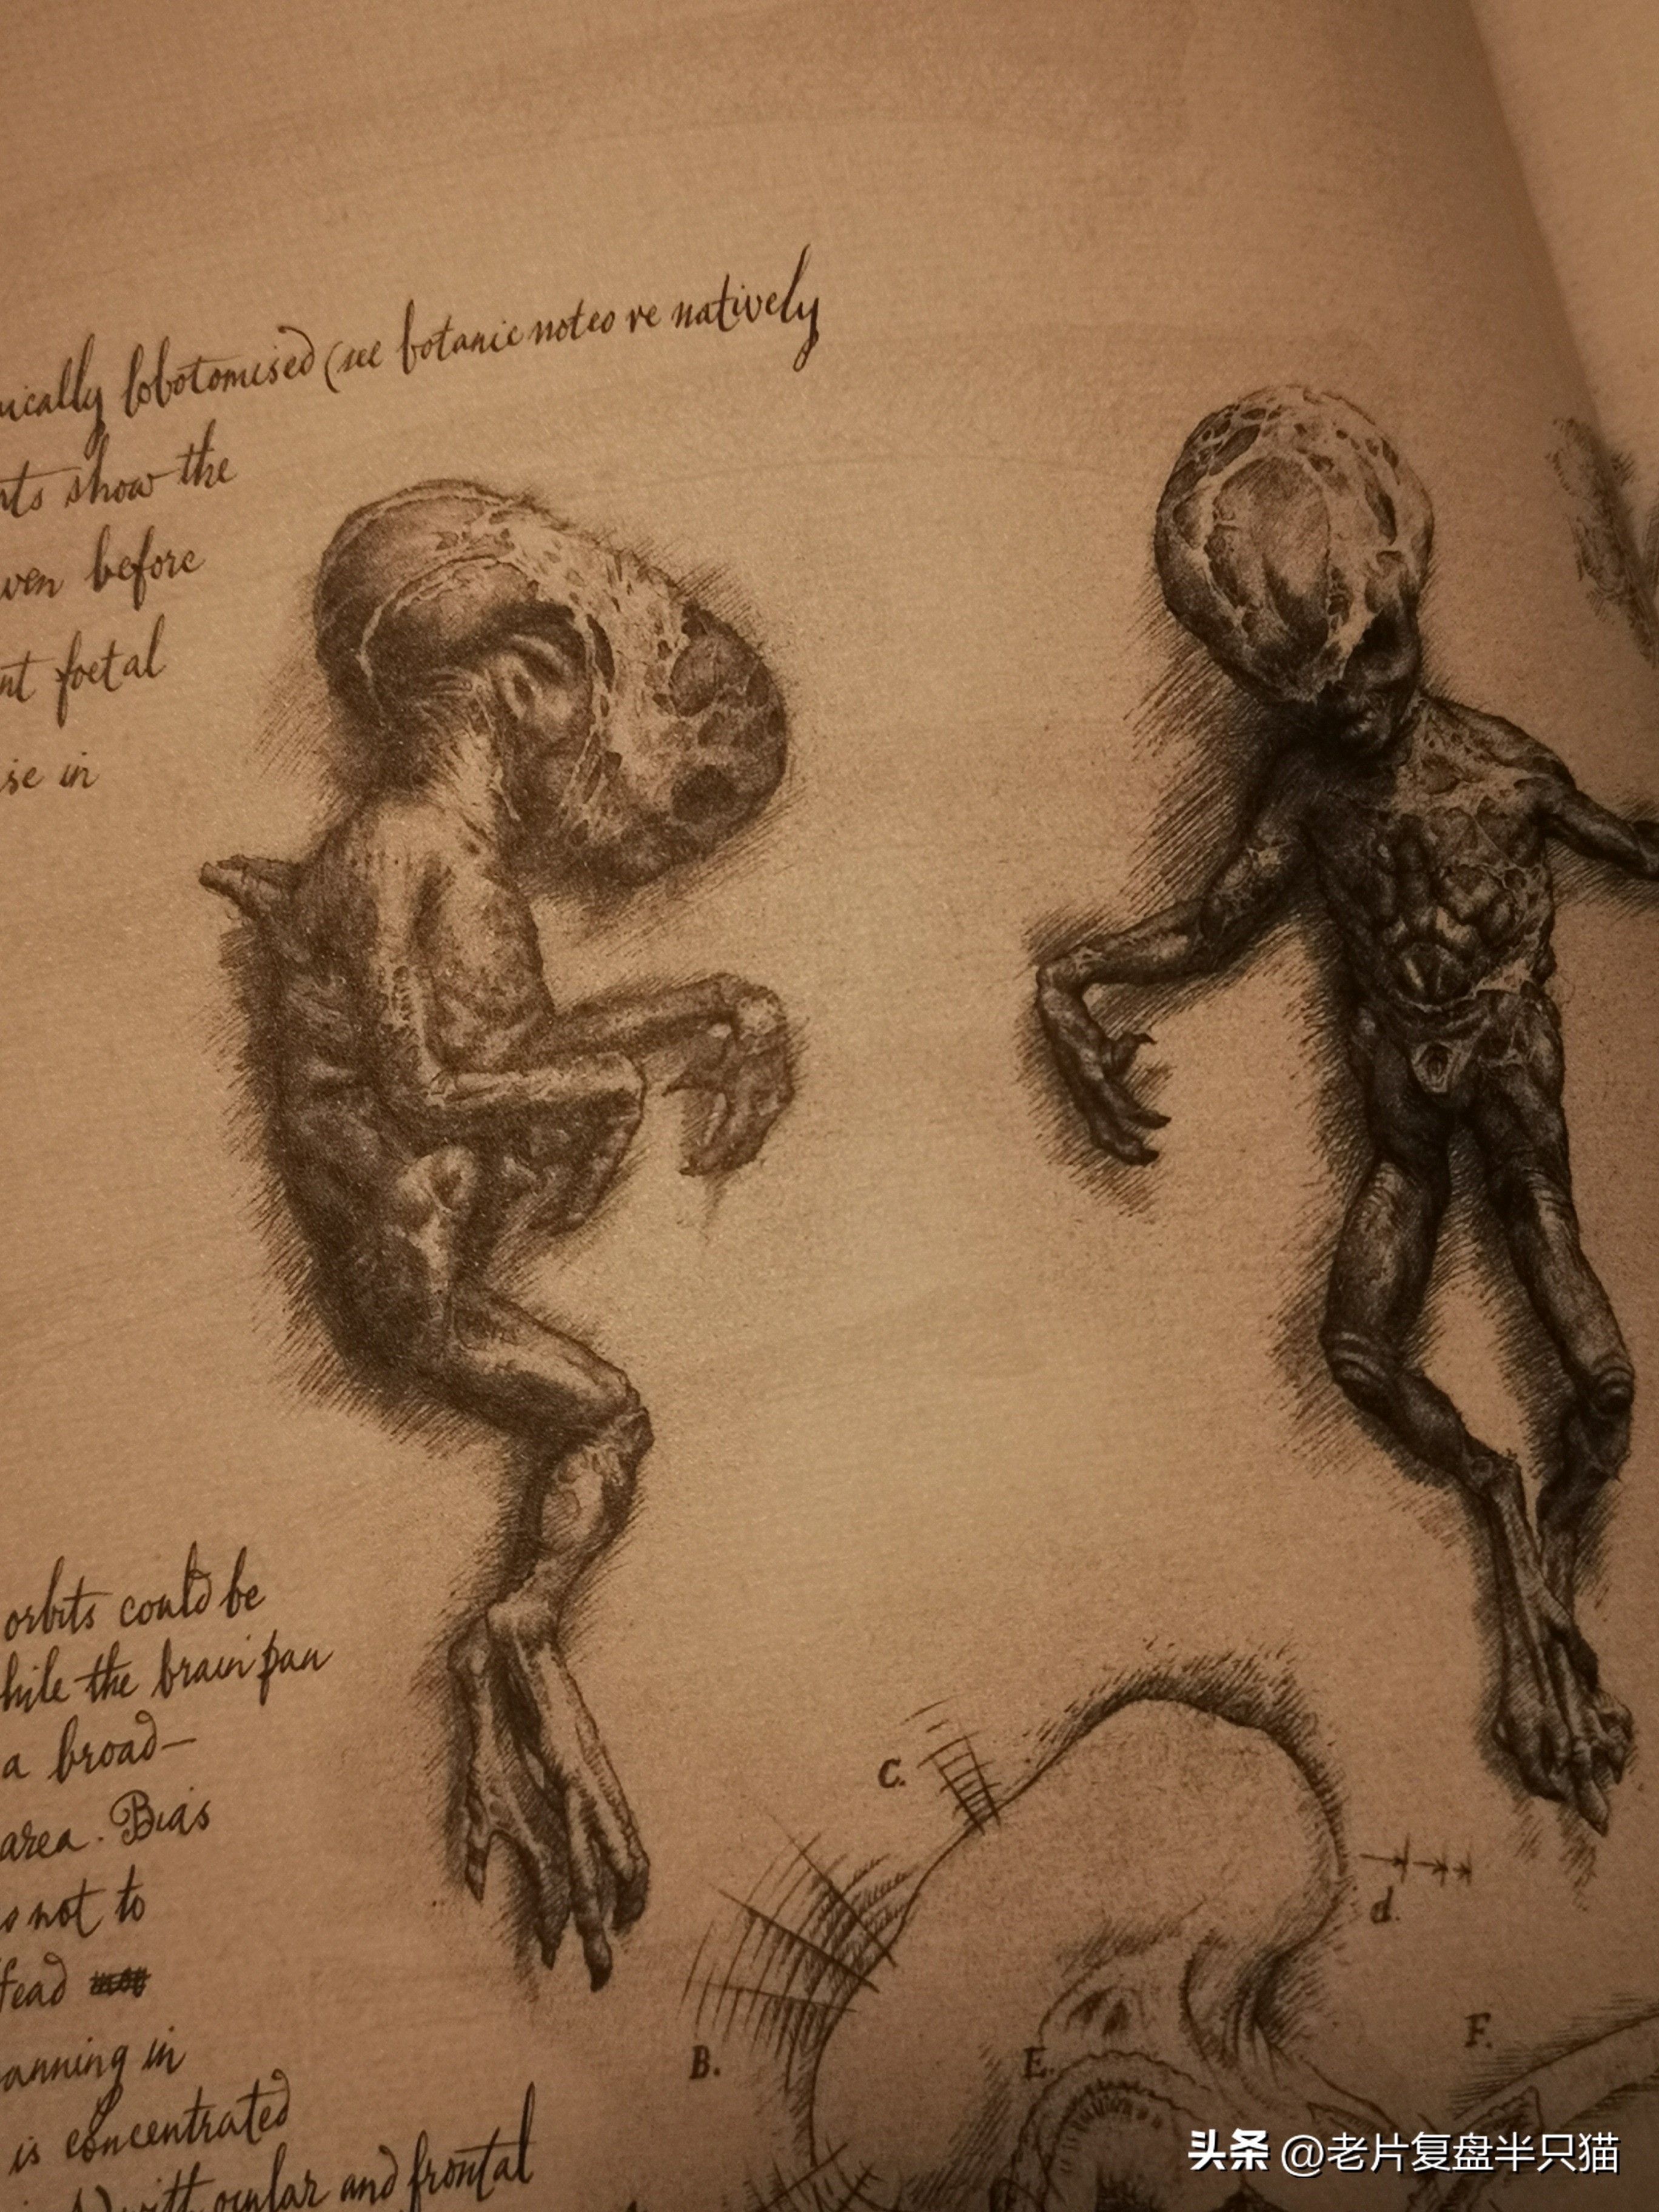 nically lobotomised (see botanic notes re natively
nts show the
even before
nt foetal
se in
orbits could be
hile the brain pan
a broad—
area. Bias
s not to
fead
anning in
is concentrated
with ocular and frontal
C.
d.
B.
E.
F.
头条 @老片复盘半只猫